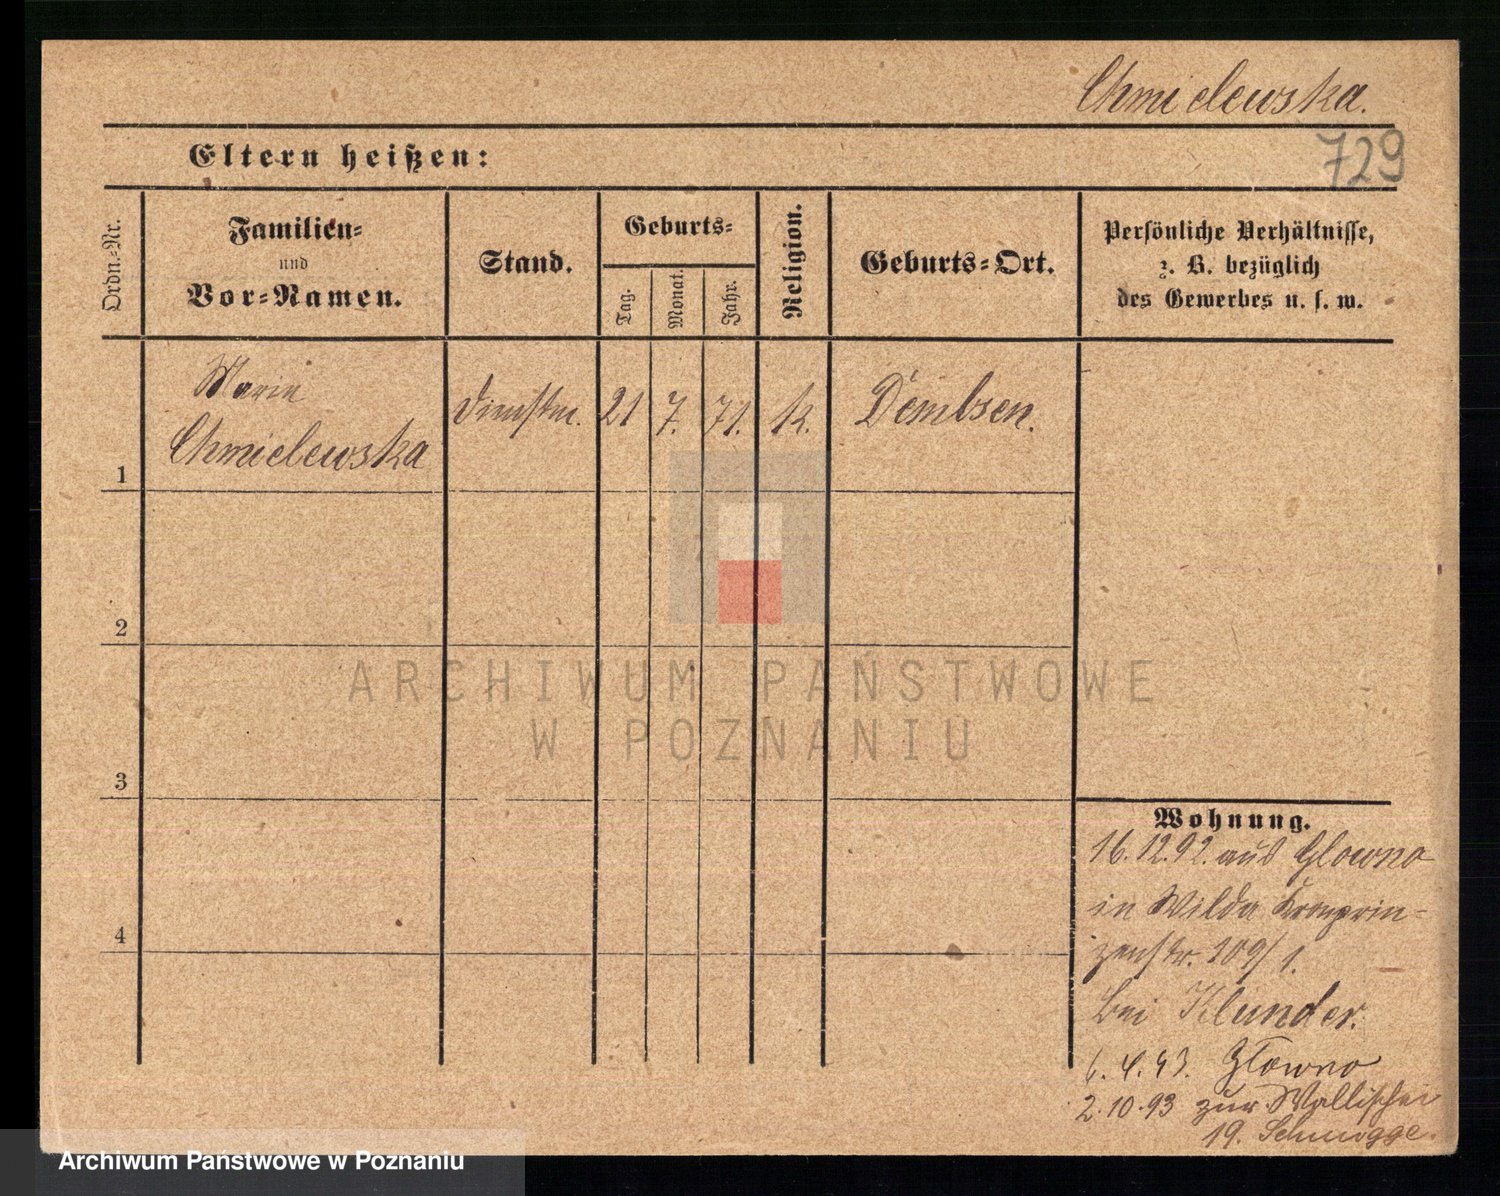 Chmielewska.
729
Eltern heißen:
Ordn.-Nr.
Familien-
und
Vor-Namen.
Stand.
Geburts-
Tag.
Monat.
Jahr.
Religion.
Geburts-Ort.
Persönliche Verhältnisse,
z. B. bezüglich
des Gewerbes u. s. w.
1
Marie
Chmielewska
21
7.
71.
k.
Dembsen.
2
3
4
Wohnung.
16.12.92. aus Glowno
in Wilda Kronprin-
zenstr. 109/1.
bei Klunder.
6.4.93. Głowno
2.10.93 zur. Wallischei
19. Schmigge.
ARCHIWUM PAŃSTWOWE
W POZNANIU
Archiwum Państwowe w Poznaniu